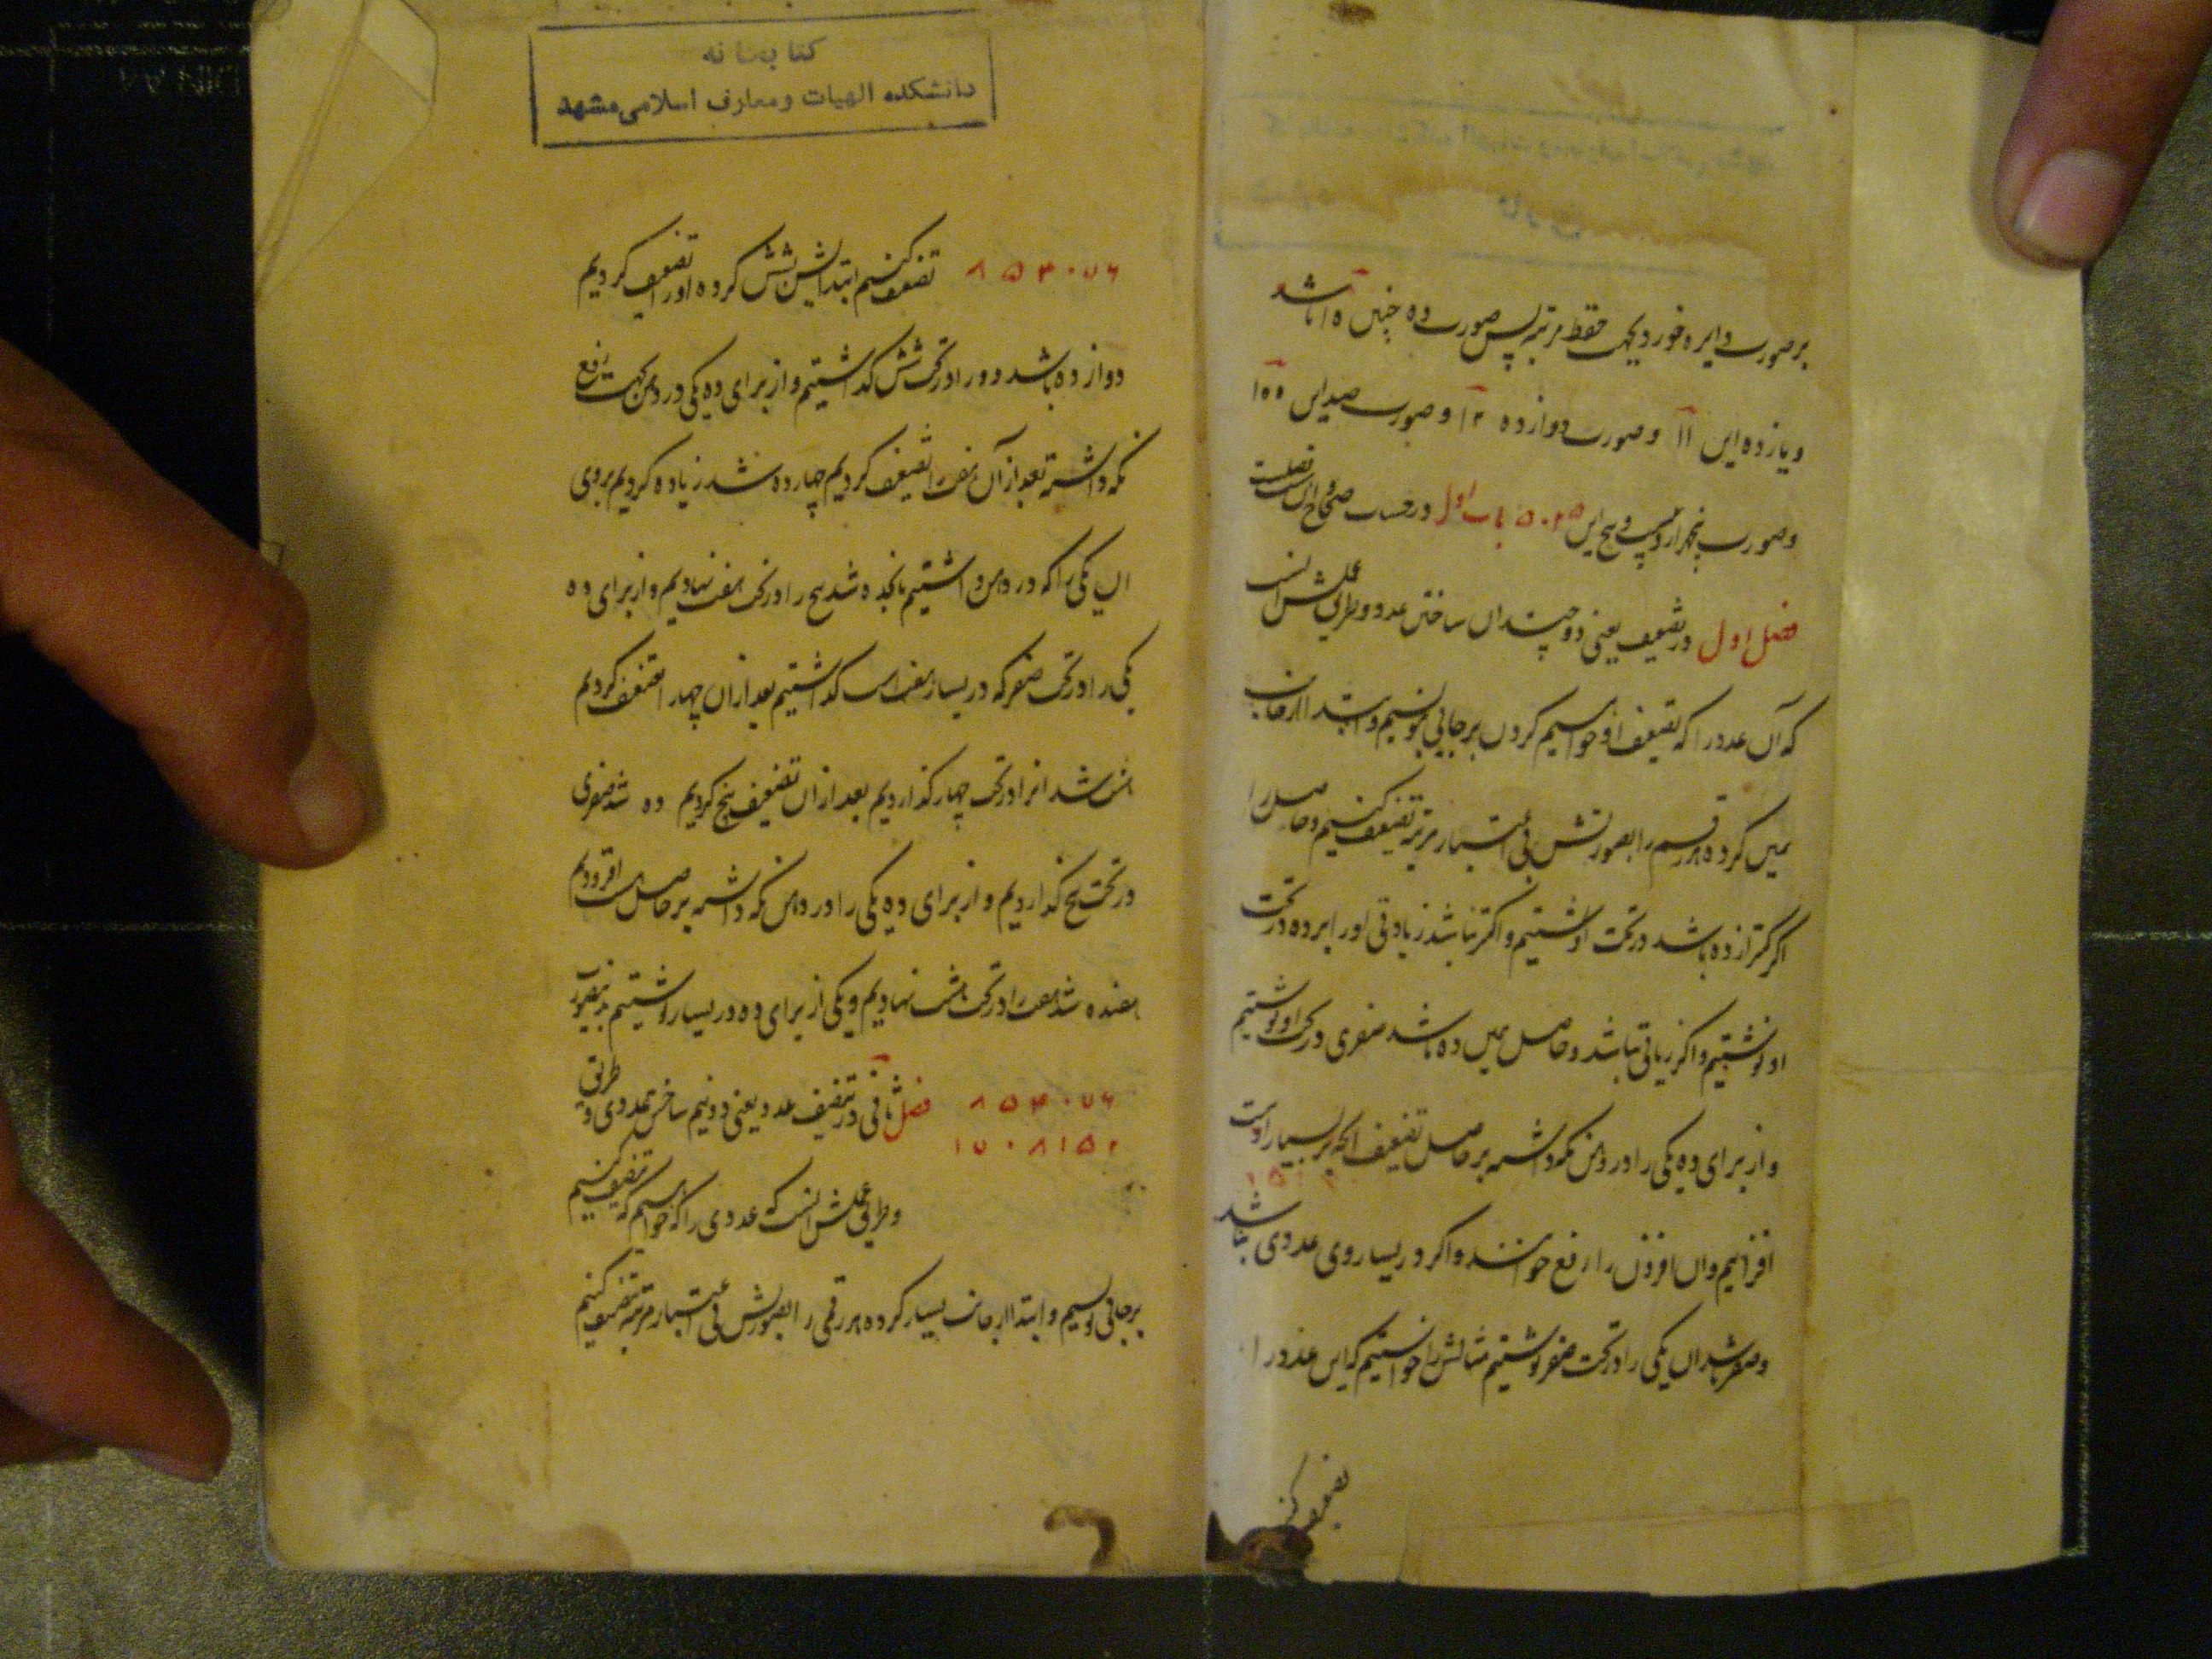 بر صورت دایره خورد بجهت حفظ مرتبه پس صورت ده چنین ۱۰ باشد
و یازده این ۱۱ و صورت دوازده ۱۲ و صورت صد این ۱۰۰
و صورت پنجهزار و بیست و پنج این ۵۰۲۵ باب اول در حساب صحاح
فصل اول در تضعیف یعنی دو چندان ساختن عدد و طریق عملش آنست
که آن عدد را که تضعیف او خواهیم کردن بر جایی بنویسیم و ابتدا از جانب
یمین کرده هر رقم را بصورتش بی اعتبار مرتبه تضعیف کنیم و حاصل را
اگر کمتر از ده باشد در تحت او نوشتیم و اگر نباشد زیادتی او را بر ده در تحت
او نوشتیم و اگر زیاتی نباشد و حاصل همین ده باشد صفری در تحت او نوشتیم
و از برای ده یکی را در ذهن نگه داشته بر حاصل تضعیف آنچه بر یسار اوست
افزاییم و آن افزون را رفع خوانند و اگر در یسار وی عددی نباشد
و صفر باشد آن یکی را در تحت صفر نوشتیم مثالش خواستیم که این عدد را
تضعیف کنیم
کتابخانه
دانشکده الهیات و معارف اسلامی مشهد
۸۵۴۰۷۶ تضعیف کنیم ابتدا بشش کرده او را تضعیف کردیم
دوازده باشد دو را در تحت شش گذاشتیم و از برای ده یکی در ذهن بجهت رفع
نگه داشته بعد از آن هفت را تضعیف کردیم چهارده شد زیاده کردیم بروی
آن یکی را که در ذهن داشتیم پانجده شد پنج را در تحت هفت نهادیم و از برای ده
یکی را در تحت صفر که در یسار هفت است گذاشتیم بعد از آن چهار را تضعیف کردیم
هشت شد انرا در تحت چهار گذاردیم بعد از ان تضعیف پنج کردیم ده شد صفری
در تحت پنج گذاردیم و از برای ده یکی را در ذهن نگه داشته بر حاصل هشت افزودیم
هفده شد هفت را در تحت هشت نهادیم و یکی از برای ده در یسار نوشتیم
۸۵۴۰۷۶ فصل ثانی در تنصیف عدد یعنی دو نیم ساختن عددی و طریق
۱۷۰۸۱۵۲
و طریق عملش آنست که عددی را که خواهیم که تنصیف کنیم
بر جائی نویسیم و ابتدا از جانب یسار کرده هر رقمی را بصورتش بی اعتبار مرتبه تنصیف کنیم